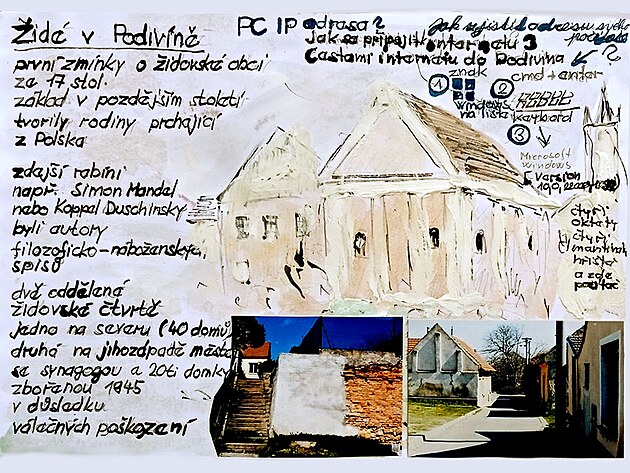 Židé v Podivíně
první zmínky o židovské obci
ze 17 stol.
základ v pozdějším století
tvořily rodiny prchající
z Polska
zdajší rabíni
např. Simon Mandel
nebo Koppel Duschinsky
byli autory
filozoficko-náboženských
spisů
dvě oddělené
židovské čtvrtě
jedna na severu (40 domů)
druhá na jihozápadě města
se synagogou a 20ti domky
zbořenou 1945
v důsledku
válečných poškození
PC IP adresa?
jak zjistit adresu svého
jak se připojit internetu 3
částami internetu do Podivína
znak
1
2
cmd + enter
windows
na liště
keyboard
3
Microsoft
Windows
[version
čtyři
oktety
čtyři
hřiště
a zde